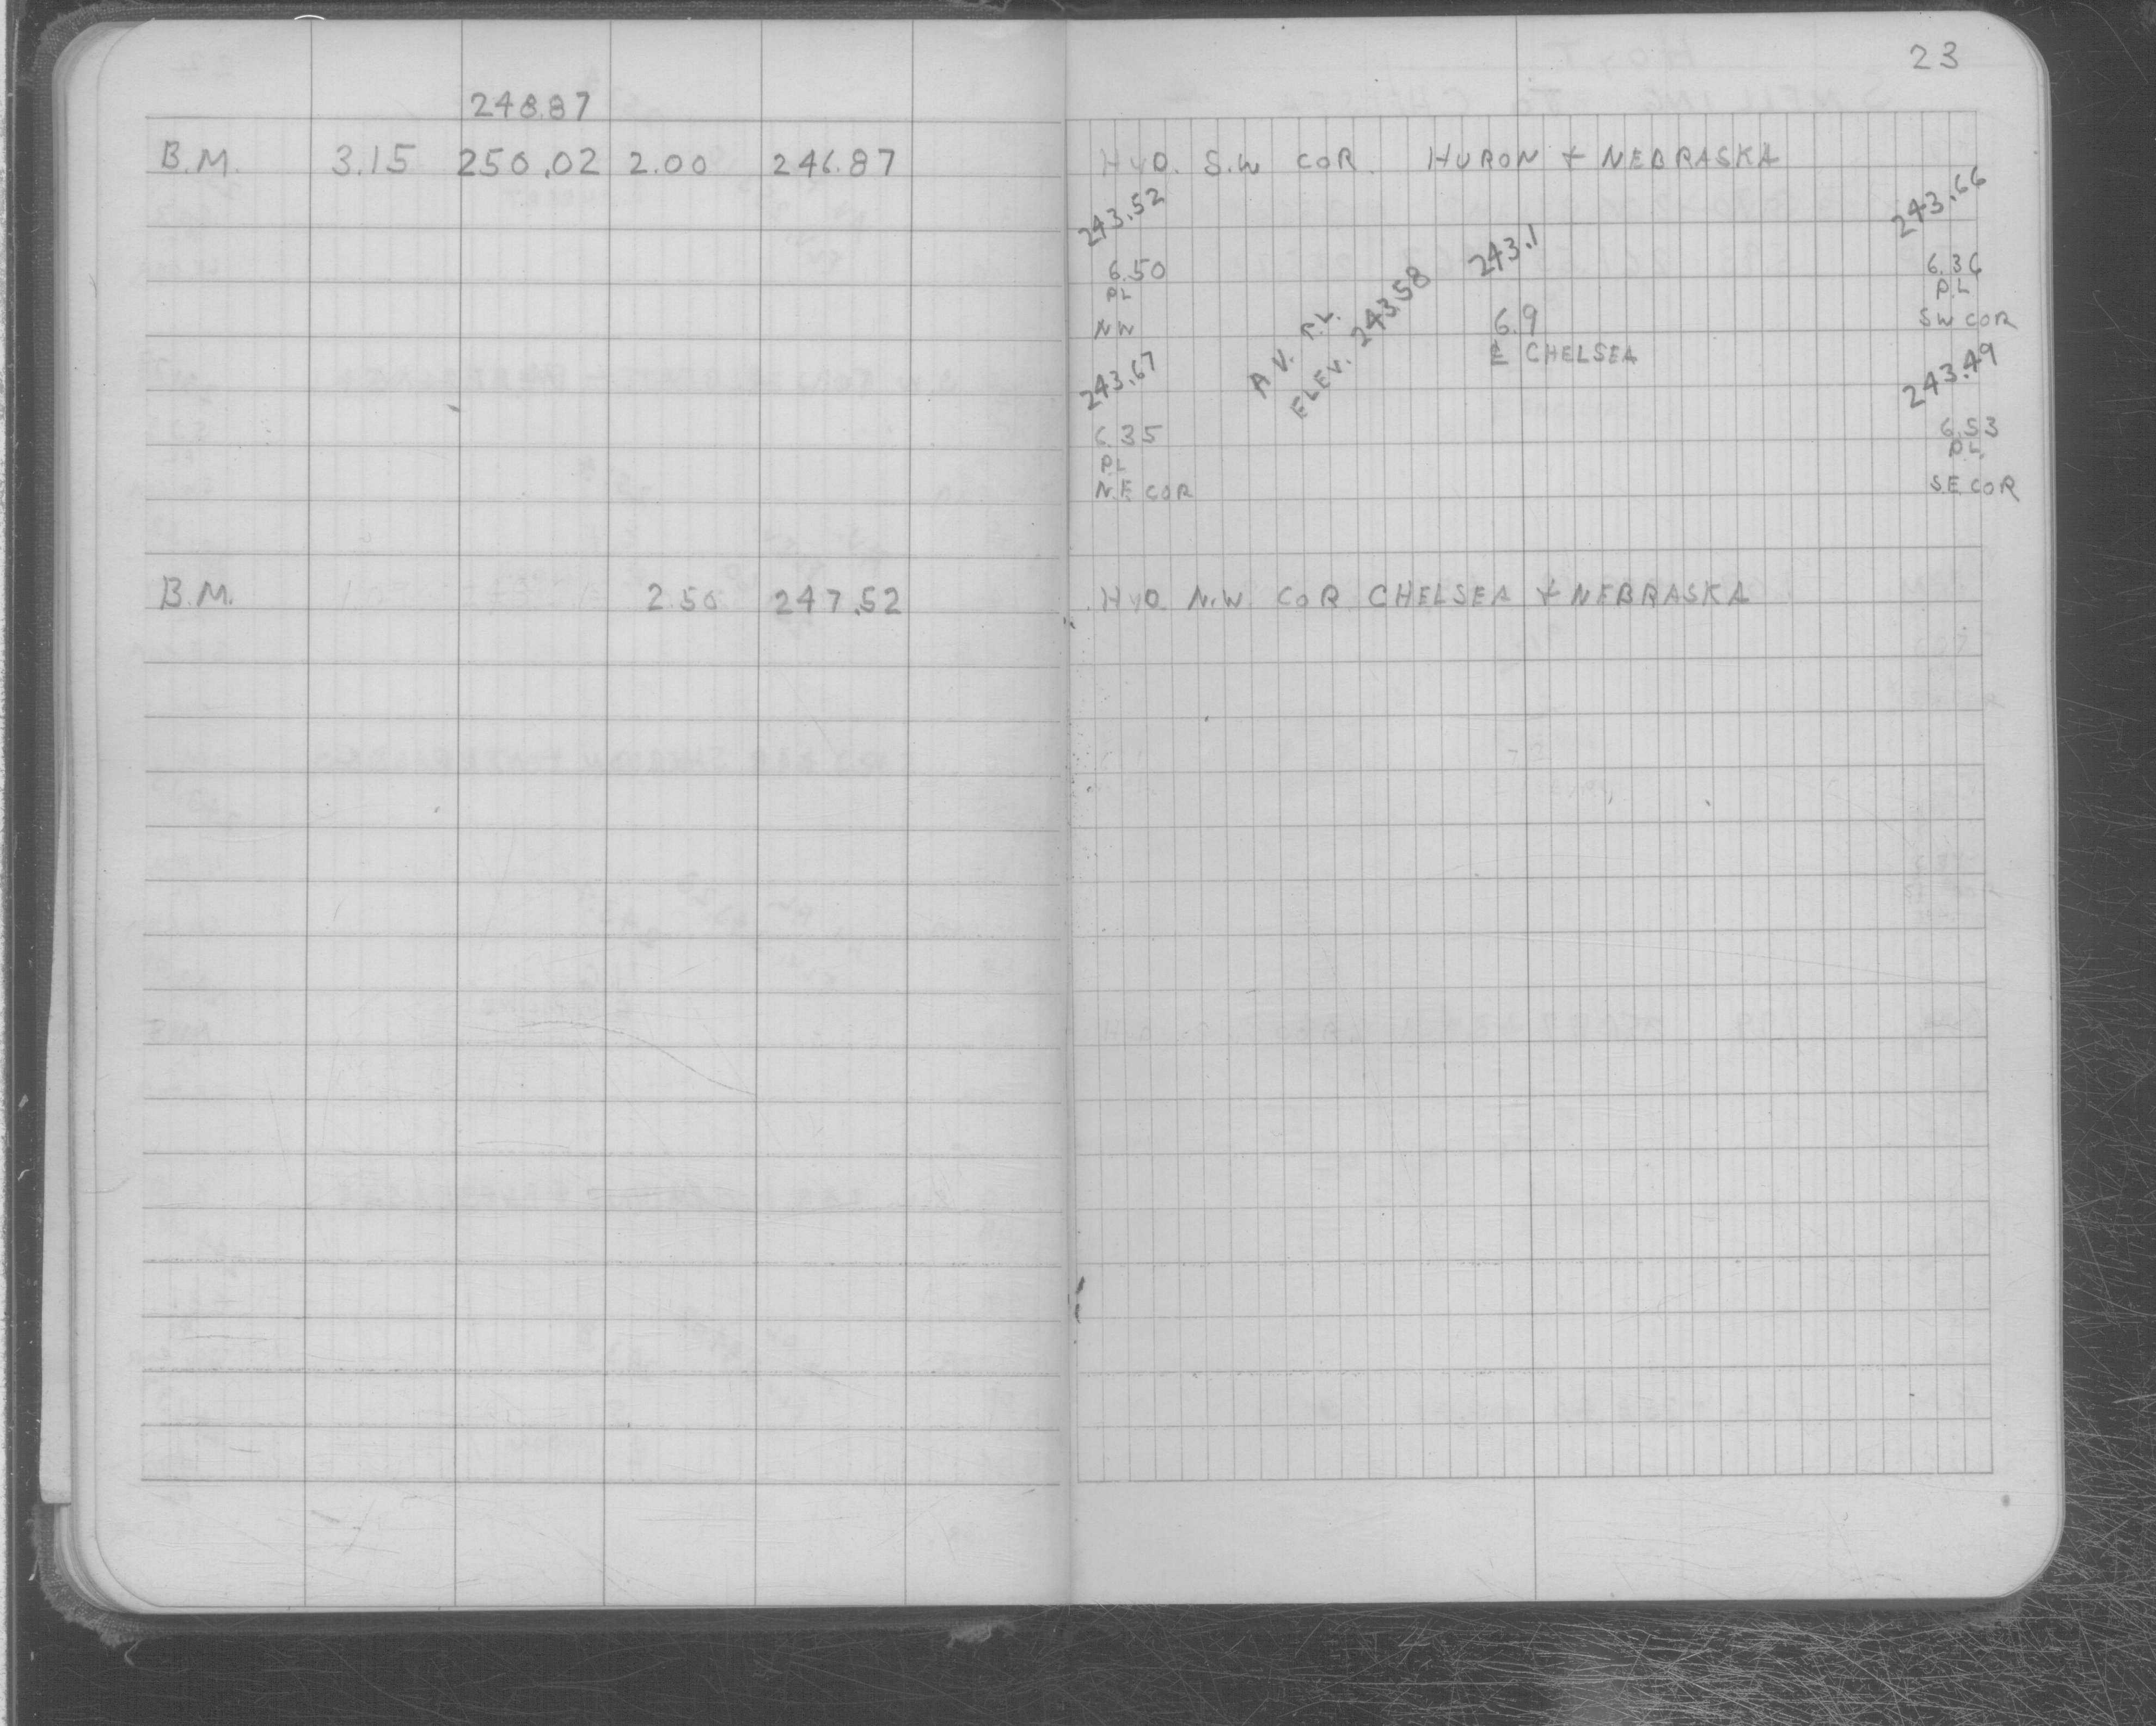 23
248.87
B.M. 3.15 250.02 2.00 246.87
HYD. S.W COR. HURON & NEBRASKA
243.52 243.1 243.66
6.50 6.36
PL P.L
NW 6.9 SW COR
A V. P.L.
ELEV. 243.58
℄ CHELSEA
243.67 243.49
6.35 6.53
PL P.L.
N.E COR S.E COR
B.M. 2.50 247.52
HYD N.W COR CHELSEA & NEBRASKA